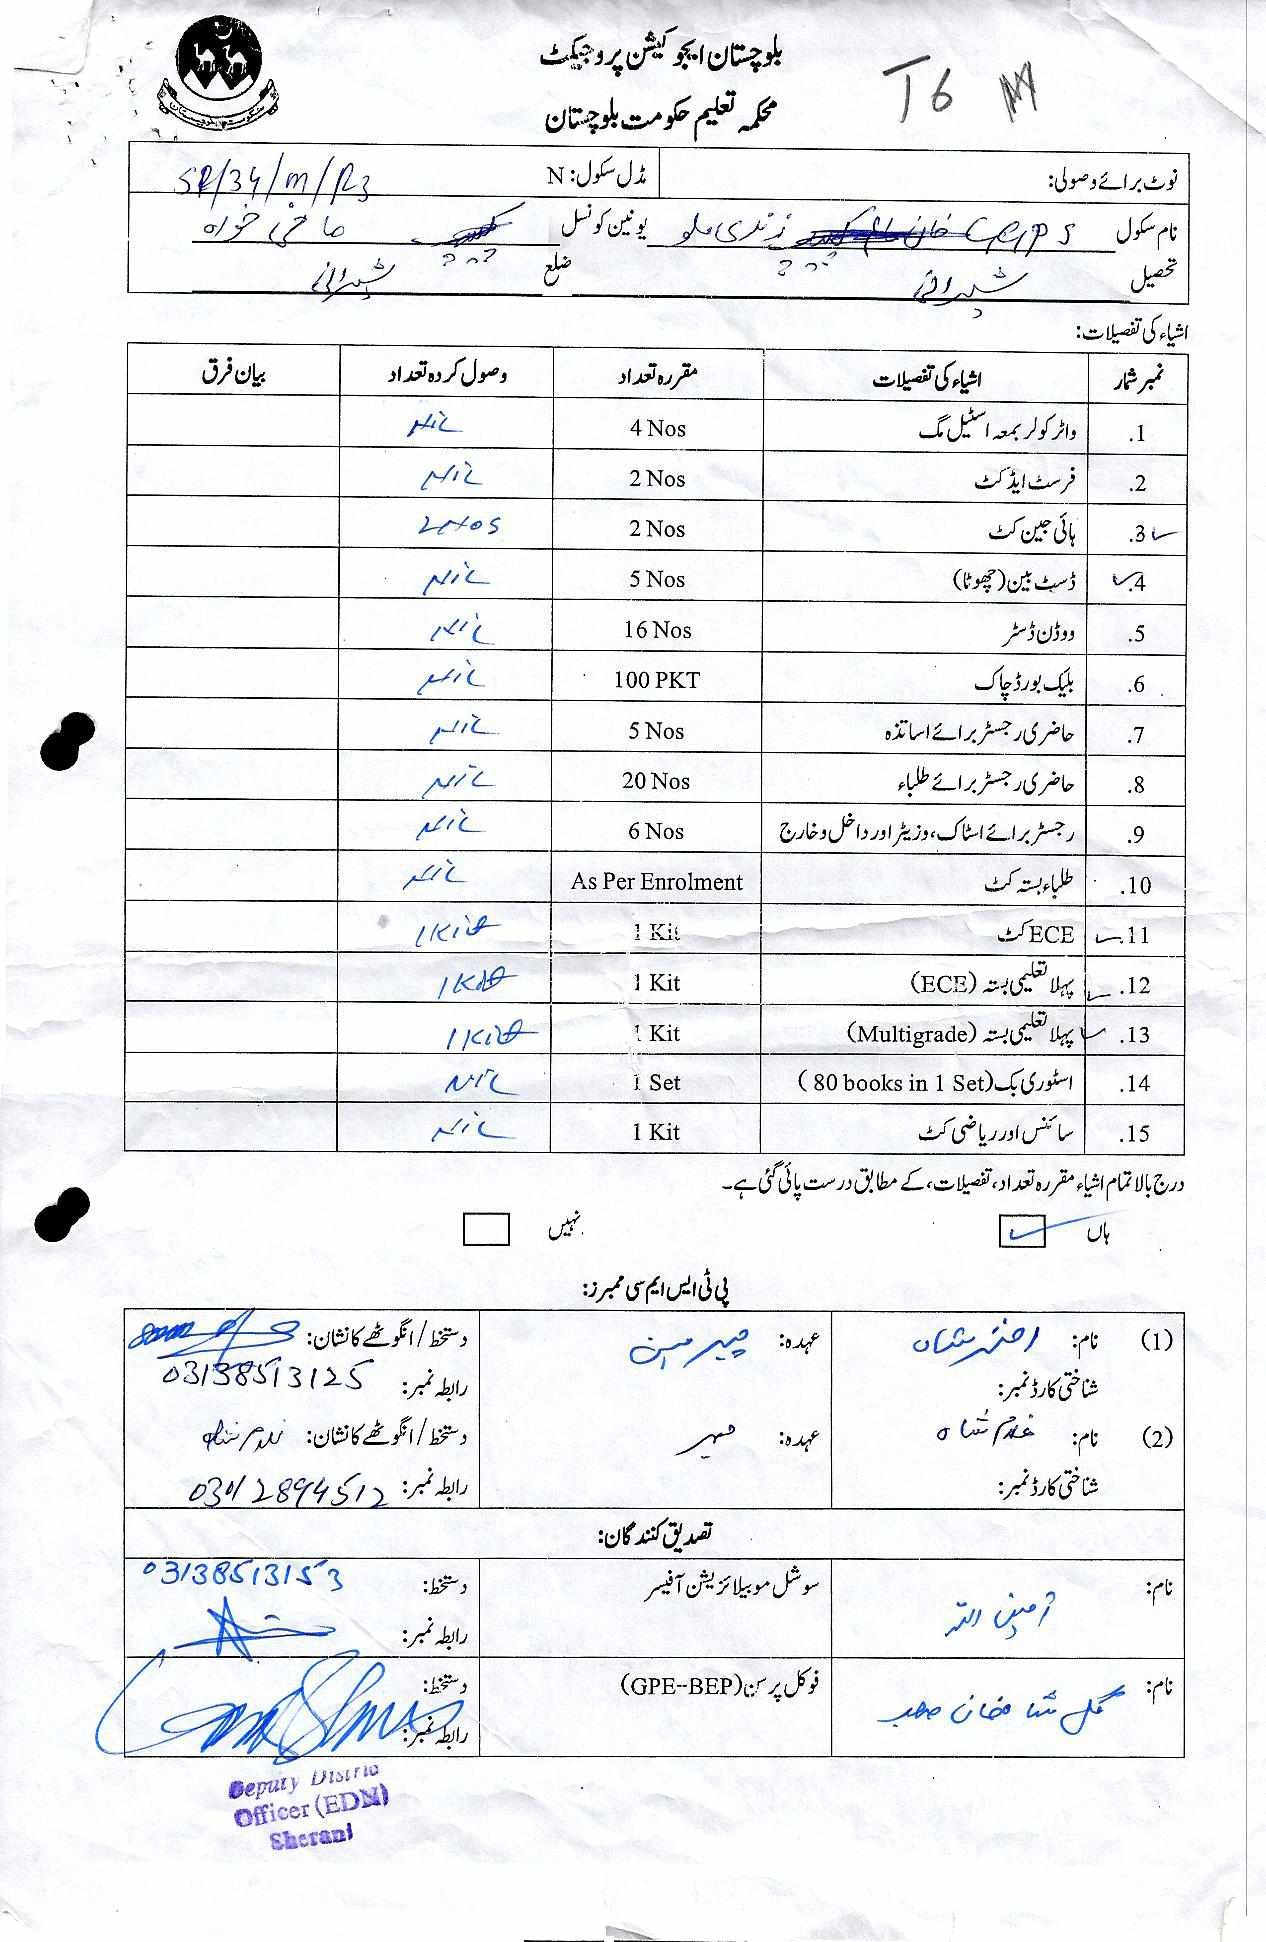 بلوچستان ایجوکیشن پروجیکٹ
T6
محکمہ تعلیم حکومت بلوچستان
نوٹ برائے وصولی: مڈل سکول: N SR/34/m/R3
نام سکول GGPS یونین کونسل
تحصیل شیرانی ضلع شیرانی
اشیاء کی تفصیلات:
نمبر شمار اشیاء کی تفصیلات مقررہ تعداد وصول کردہ تعداد بیان فرق
1. واٹر کولر بمعہ اسٹیل مگ 4 Nos Nil
2. فرسٹ ایڈ کٹ 2 Nos Nil
3. ہائی جین کٹ 2 Nos 2 Nos
4. ڈسٹ بین (چھوٹا) 5 Nos Nil
5. ووڈن ڈسٹر 16 Nos Nil
6. بلیک بورڈ چاک 100 PKT Nil
7. حاضری رجسٹر برائے اساتذہ 5 Nos Nil
8. حاضری رجسٹر برائے طلباء 20 Nos Nil
9. رجسٹر برائے اسٹاک، وزیٹر اور داخل و خارج 6 Nos Nil
10. طلباء بستہ کٹ As Per Enrolment Nil
11. ECE کٹ 1 Kit 1 Kit
12. پہلا تعلیمی بستہ (ECE) 1 Kit 1 Kit
13. پہلا تعلیمی بستہ (Multigrade) 1 Kit 1 Kit
14. اسٹوری بک (80 books in 1 Set) 1 Set Nil
15. سائنس اور ریاضی کٹ 1 Kit Nil
درج بالا تمام اشیاء مقررہ تعداد، تفصیلات، کے مطابق درست پائی گئی ہے۔
ہاں نہیں
پی ٹی ایس ایم سی ممبرز:
(1) نام: اختر شاہ عہدہ: چیئرمین دستخط / انگوٹھے کا نشان:
شناختی کارڈ نمبر: رابطہ نمبر: 03138513125
(2) نام: غلام شاہ عہدہ: ممبر دستخط / انگوٹھے کا نشان: غلام شاہ
شناختی کارڈ نمبر: رابطہ نمبر: 03412894512
تصدیق کنندگان:
نام: امین اللہ سوشل موبیلائزیشن آفیسر دستخط: 03138513153
رابطہ نمبر:
نام: گل شا خان فوکل پرسن (GPE-BEP) دستخط:
رابطہ نمبر:
Deputy District
Officer (EDN)
Sherani